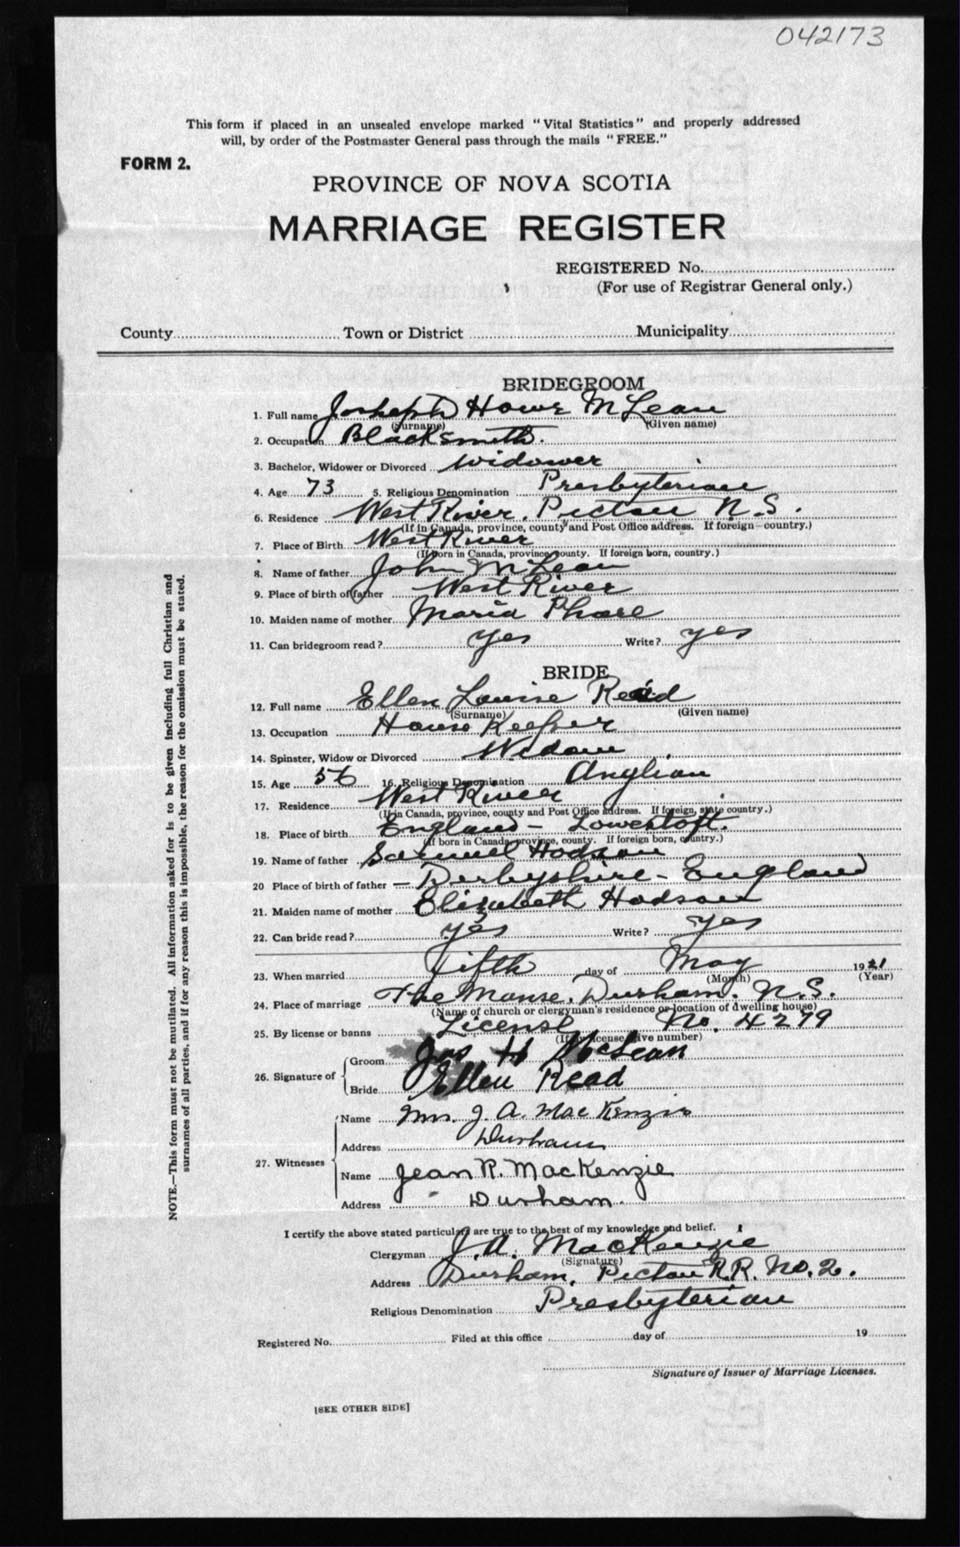 042173
This form if placed in an unsealed envelope marked "Vital Statistics" and properly addressed
will, by order of the Postmaster General pass through the mails "FREE."
FORM 2.
PROVINCE OF NOVA SCOTIA
MARRIAGE REGISTER
REGISTERED No.
(For use of Registrar General only.)
County Town or District Municipality
BRIDEGROOM
1. Full name Josheph Howe McLean
(Surname) (Given name)
2. Occupation Blacksmith.
3. Bachelor, Widower or Divorced Widower
4. Age 73 5. Religious Denomination Presbyterian
6. Residence West River, Pictou N.S.
(If in Canada, province, county and Post Office address. If foreign—country.)
7. Place of Birth West River
(If born in Canada, province county. If foreign born, country.)
8. Name of father John McLean
9. Place of birth of father West River
10. Maiden name of mother Maria
11. Can bridegroom read? yes Write? yes
BRIDE
12. Full name Ellen Louise Read
(Surname) (Given name)
13. Occupation House Keeper
14. Spinster, Widow or Divorced Widow
15. Age 56 16. Religious Denomination Anglian
17. Residence West River
(If in Canada, province, county and Post Office address. If foreign, state country.)
18. Place of birth England - Lowestoft.
(If born in Canada, province, county. If foreign born, country.)
19. Name of father Samuel Hodson
20 Place of birth of father — Derbyshire - England
21. Maiden name of mother Elizabeth Hodson
22. Can bride read? yes Write? yes
23. When married Fifth day of May 1921
(Month) (Year)
24. Place of marriage The Manse, Durham, N.S.
(Name of church or clergyman's residence or location of dwelling house)
25. By license or banns License No. 4279
(If by license give number)
26. Signature of Groom Jos H McLean
Bride Ellen Read
27. Witnesses Name Mrs. J. A. MacKenzie
Address Durham
Name Jean R. MacKenzie
Address Durham.
I certify the above stated particulars are true to the best of my knowledge and belief.
Clergyman J. A. MacKenzie
(Signature)
Address Durham, Pictou R.R. No. 2.
Religious Denomination Presbyterian
Registered No. Filed at this office day of 19
Signature of Issuer of Marriage Licenses.
[SEE OTHER SIDE]
NOTE.—This form must not be mutilated. All information asked for is to be given including full Christian and
surnames of all parties, and if for any reason this is impossible, the reason for the omission must be stated.